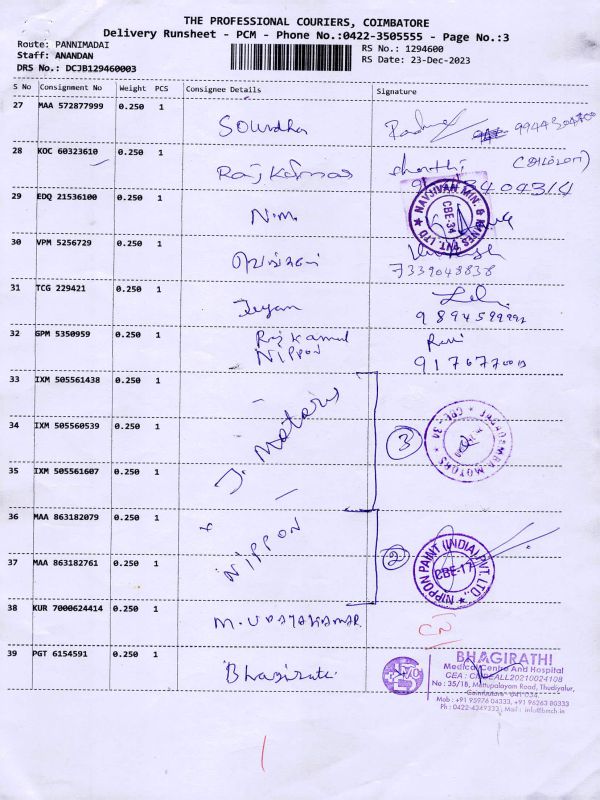 THE PROFESSIONAL COURIERS, COIMBATORE
Delivery Runsheet - PCM - Phone No.:0422-3505555 - Page No.:3
Route: PANNIMADAI
Staff: ANANDAN
DRS No.: DCJB129460003
RS No.: 1294600
RS Date: 23-Dec-2023
S No Consignment No Weight PCS Consignee Details Signature
27 MAA 572877999 0.250 1
28 KOC 60323610 0.250 1 Raj Kamal
29 EDQ 21536100 0.250 1 N.M. NAVJIVAN MIN. & PVT. LTD CBE-34
30 VPM 5256729 0.250 1
7339048838
31 TCG 229421 0.250 1 Jeyam
32 GPM 5350959 0.250 1 Raj Kamal
NIPPON
33 IXM 505561438 0.250 1
34 IXM 505560539 0.250 1 J. Motors 3 MOTORS ★ CBE - 34
35 IXM 505561607 0.250 1
36 MAA 863182079 0.250 1
37 MAA 863182761 0.250 1 NIPPON 2 NIPPON PAINT (INDIA) PVT. LTD., CBE-17
38 KUR 7000624414 0.250 1 M. UDAYAKUMAR CN
39 PGT 6154591 0.250 1 Bhagirati
BHAGIRATHI
Medical Centre And Hospital
No : 35/18, Mettupalayam Road, Thudiyalur,
Coimbatore - 641 034.
Mob : +91 95976 04333, +91 96263 80333
Ph : 0422-4349333, Mail : info@bmch.in